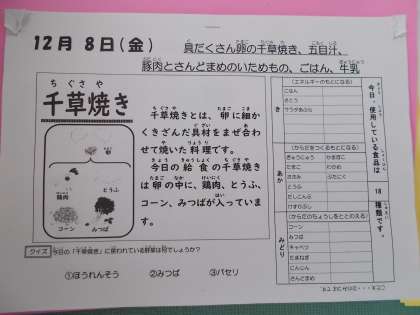 12月 8日(金)
具だくさん卵の千草焼き、五目汁、
豚肉とさんどまめのいためもの、ごはん、牛乳
ちぐさや
千草焼き
卵
鶏肉
とうふ
コーン
みつば
千草焼きとは、卵に細か
くきざんだ具材をまぜ合わ
せて焼いた料理です。
今日の給食の千草焼き
は卵の中に、鶏肉、とうふ、
コーン、みつばが入っていま
す。
クイズ 今日の「千草焼き」に使われている野菜は何でしょうか?
①ほうれんそう ②みつば ③パセリ
今日、使用している食品は
18
種類です。
き
(エネルギーのもとになる)
ごはん
さとう
サラダあぶら
あか
(からだをつくるもとになる)
ぎゅうにゅう かまぼこ
たまご わかめ
ぶたにく
とうふ
だしこんぶ
けずりぶし
みどり
(からだのちょうしをととのえる)
コーン
みつば
キャベツ
たまねぎ
にんじん
さんどまめ